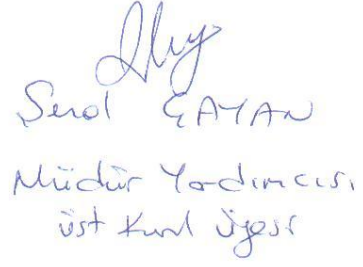 Serol ÇAYAN
Müdür Yardımcısı
üst Kurul üyesi